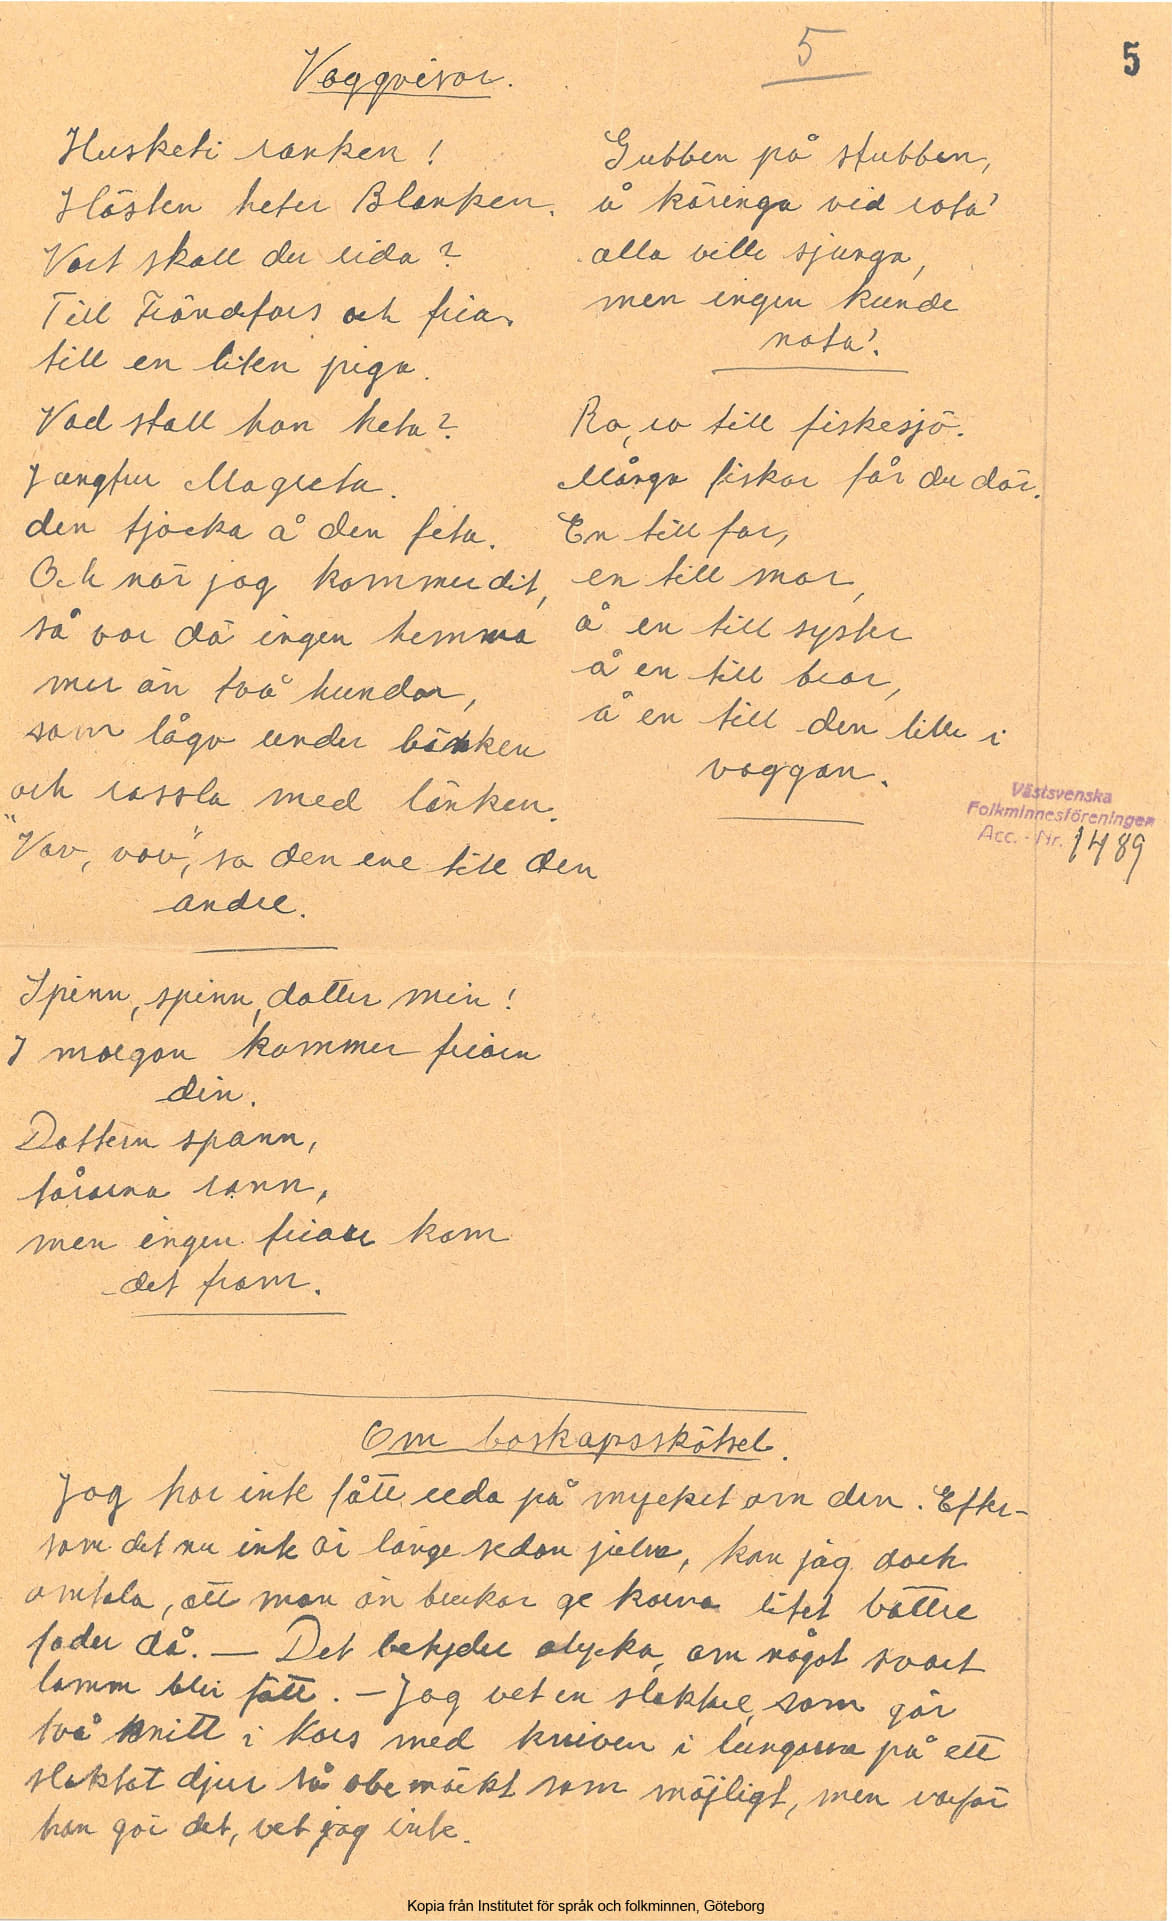 5
5
Vaggvisor.
Husketi ranken!
Hästen heter Blanken.
Vart skall du rida?
Till Frändefors och fria,
till en liten piga.
Vad skall hon heta?
Jungfru Magreta.
den tjocka å den feta.
Och när jag kommer dit,
så var dä ingen hemma
mer än två hundar,
som lågo under bänken
och rassla med länken.
"Vov, vov", sa den ene till den
andre.
Spinn, spinn, dotter min!
I morgon kommer friarn
din.
Dottern spann,
tårarna rann,
men ingen friare kom
det fram.
Gubben på stubben,
å käringa vid rota'
alla ville sjunga,
men ingen kunde
nota'.
Ro, ro till fiskesjö.
Många fiskar får du där.
En till far,
en till mor,
å en till syster
å en till bror,
å en till den lille i
vaggan.
Västsvenska
Folkminnesföreningen
Acc. - Nr. 1489
Om boskapsskötsel.
Jag har inte fått reda på mycket om den. Efter-
som det nu inte är länge sedan julen, kan jag dock
omtala, att man än brukar ge korna litet bättre
foder då. — Det betyder olycka, om något svart
lamm blir fött. — Jag vet en slaktare, som gör
två snitt i kors med kniven i lungorna på ett
slaktat djur så obemärkt som möjligt, men varför
han gör det, vet jag inte.
Kopia från Institutet för språk och folkminnen, Göteborg